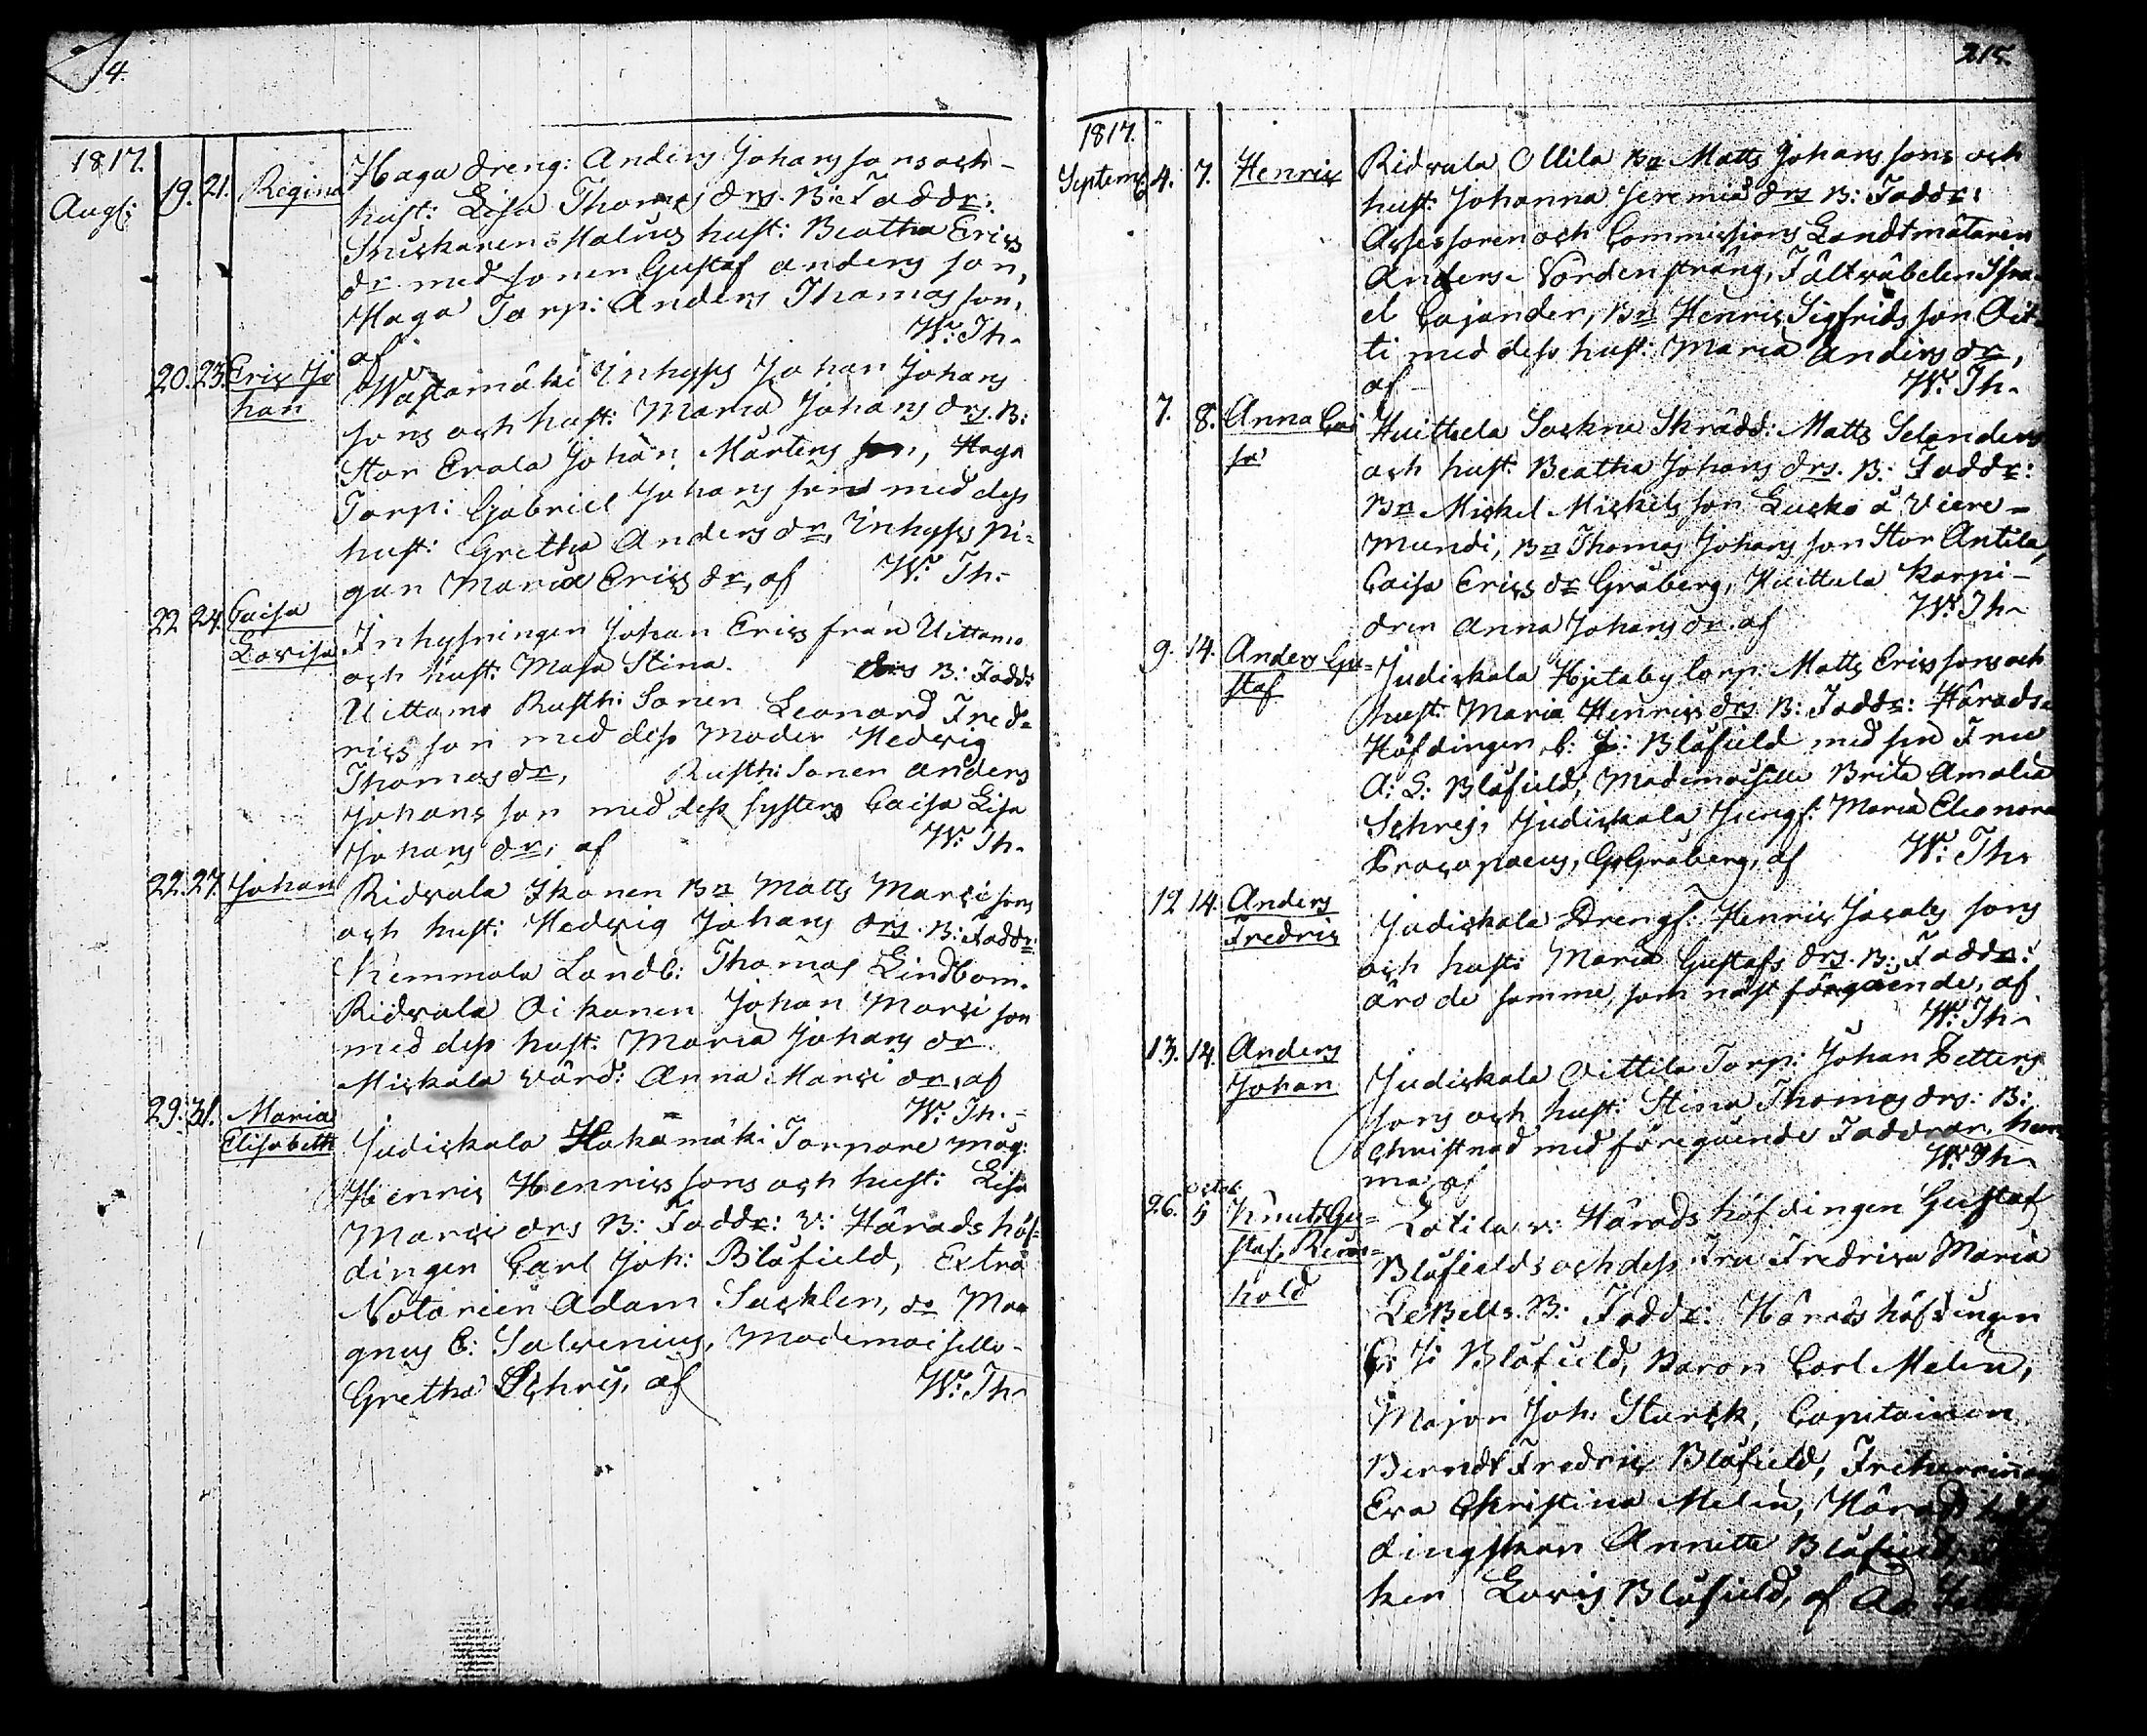 4.
1817.
Aug:
19. 21. Regina
Haga dreng: Anders Johans sons och
hust: Lisa Thomas drs. B: Faddr:
hust: Beatha Erics
dr med sonen Gustaf Anders son,
Haga Torp: Anders Thomas son,
af W: Th.
20. 23. Eric Jo
han
Wastamäki Inhyses Johan Johans
sons och hust: Maria Johans drs. B:
Stor Erola Johan Mårtens son, Haga
Torp: Gabriel Johans son med dess
hust: Gretha Anders dr, Inhyses pi=
gan Maria Erics dr, af W: Th.
22 24. Caisa
Lovisa
Inhysningen Johan Erics från Uittamo
och hust: Maja Stina. drs B: Fadd:
Uittamo Rusth: Sonen Leonard Fred=
rics son med dess Moder Hedvig
Thomas dr, Rusth: Sonen Anders
Johans son med dess syster Caisa Lisa
Johans dr, af W: Th.
22. 27. Johan
Ridvala Ikonen Bn Matts Marci sons
och hust: Hedvig Johans drs. B: Faddr:
Kemmola Landb: Thomas Lindbom.
Ridvala Oikonen Johan Marci son
med dess hust: Maria Johans dr
Mickala värd: Anna Marci dr, af
W: Th.
29. 31. Maria
Elisabeth
Judickala Hakamäki Torpare måg:
Henric Henrics sons och hust: Lisa
Marci drs B: Faddr: V: Härads höf=
dingen Carl Joh: Blåfield, Extra
Notarien Adam Sacklen, do Mag
gnus E: Salvenius, Mademoiselle
Gretha Schrej, af W: Th.
215.
1817.
Septemb 4. 7. Henric
Ridvala Ollila Bn Matts Johans sons och
hust: Johanna Jeremiæ drs B: Faddr:
Assessoren och Commissions Landtmätaren
Anders Nordensträng, Fältväbelen Isra
el Cajander, Bn Henric Sigfrids son Oit
ti med dess hust: Maria Anders dr,
af W: Th.
7. 8. Anna Cai
sa
Huittula Sockne Skrädd: Matts Selanders
och hust: Beatha Johans drs. B: Faddr:
Bn Mickel Mickels son Lucko å Viere
mundi, Bn Thomas Johans son Stor Antila,
Caisa Erics dr Gråberg, Huittula Korpi
dren Anna Johans dr. af W: Th.
9. 14. Anders Gu=
staf
Judickala Torp: Matts Erics sons och
hust: Maria Henrics drs B: Faddr: Härads
Höfdingen C: J: Blåfield med sin Fru
A: S: Blåfield, Mademoiselle Brita Amalia
Schrej, Judickala Jungf: Maria Eleonora
Procopæus, G: Gråberg, af W: Th.
12 14. Anders
Fredric
Judickala Drengf: Henric Jacobs sons
och hust: Maria Gustafs drs. B: Faddr:
äro de samme som näst föregående, af
W: Th.
13. 14. Anders
Johan
Judickala Oittila Torp: Johan Petters
sons och hust: Stina Thomas drs: B:
christnad med föregående Faddrar,
af W: Th.
26. Octob: 5 Knut Gu=
staf Rein=
hold
Lotila v: Härads höfdingen Gustaf
Blåfields och dess Fru Fredrica Maria
LeBells. B: Faddr: Härads höfdingen
C: J: Blåfield, Baron Carl Melin,
Major Joh: Starck, Capitainen
Berndt Fredric Blåfield, Friherrinnan
Eva Christina Melin, Härads höf
dingskan Annette Blåfield,
ken Lovis Blåfield, af Ad.